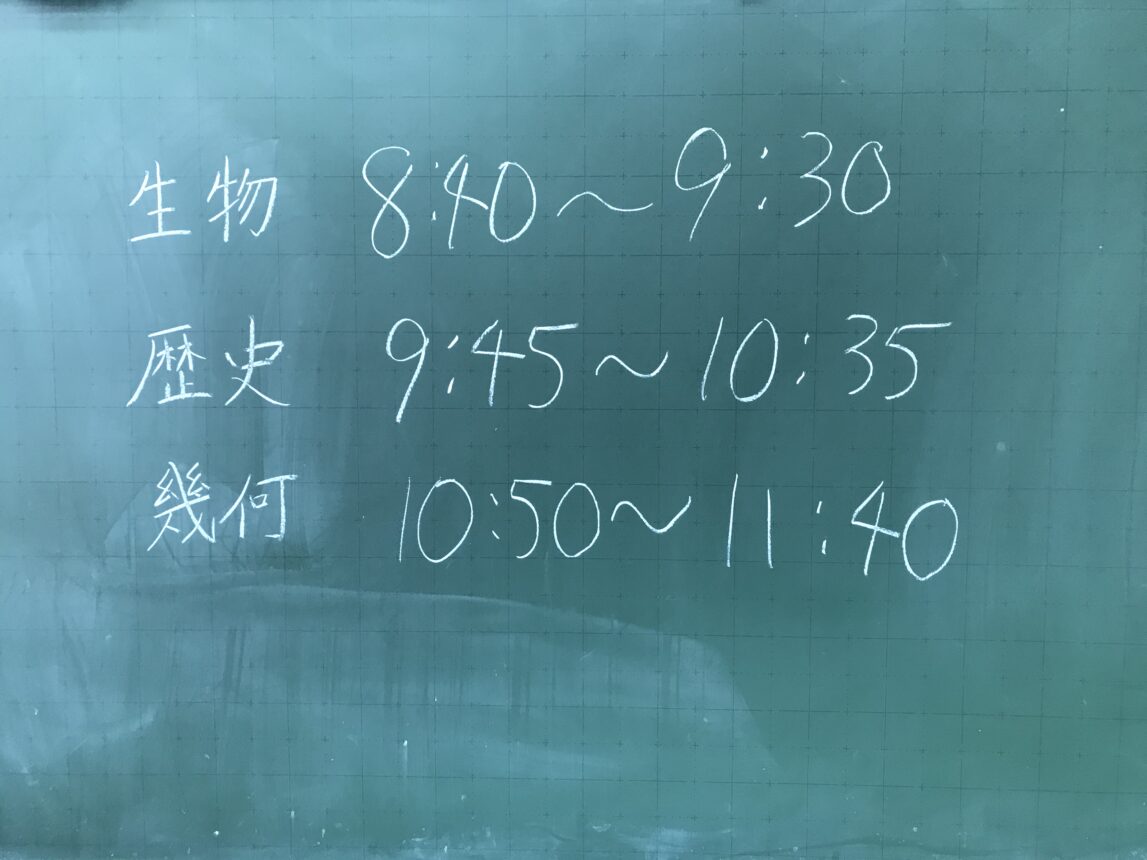 生物 8:40～9:30
歴史 9:45～10:35
幾何 10:50～11:40